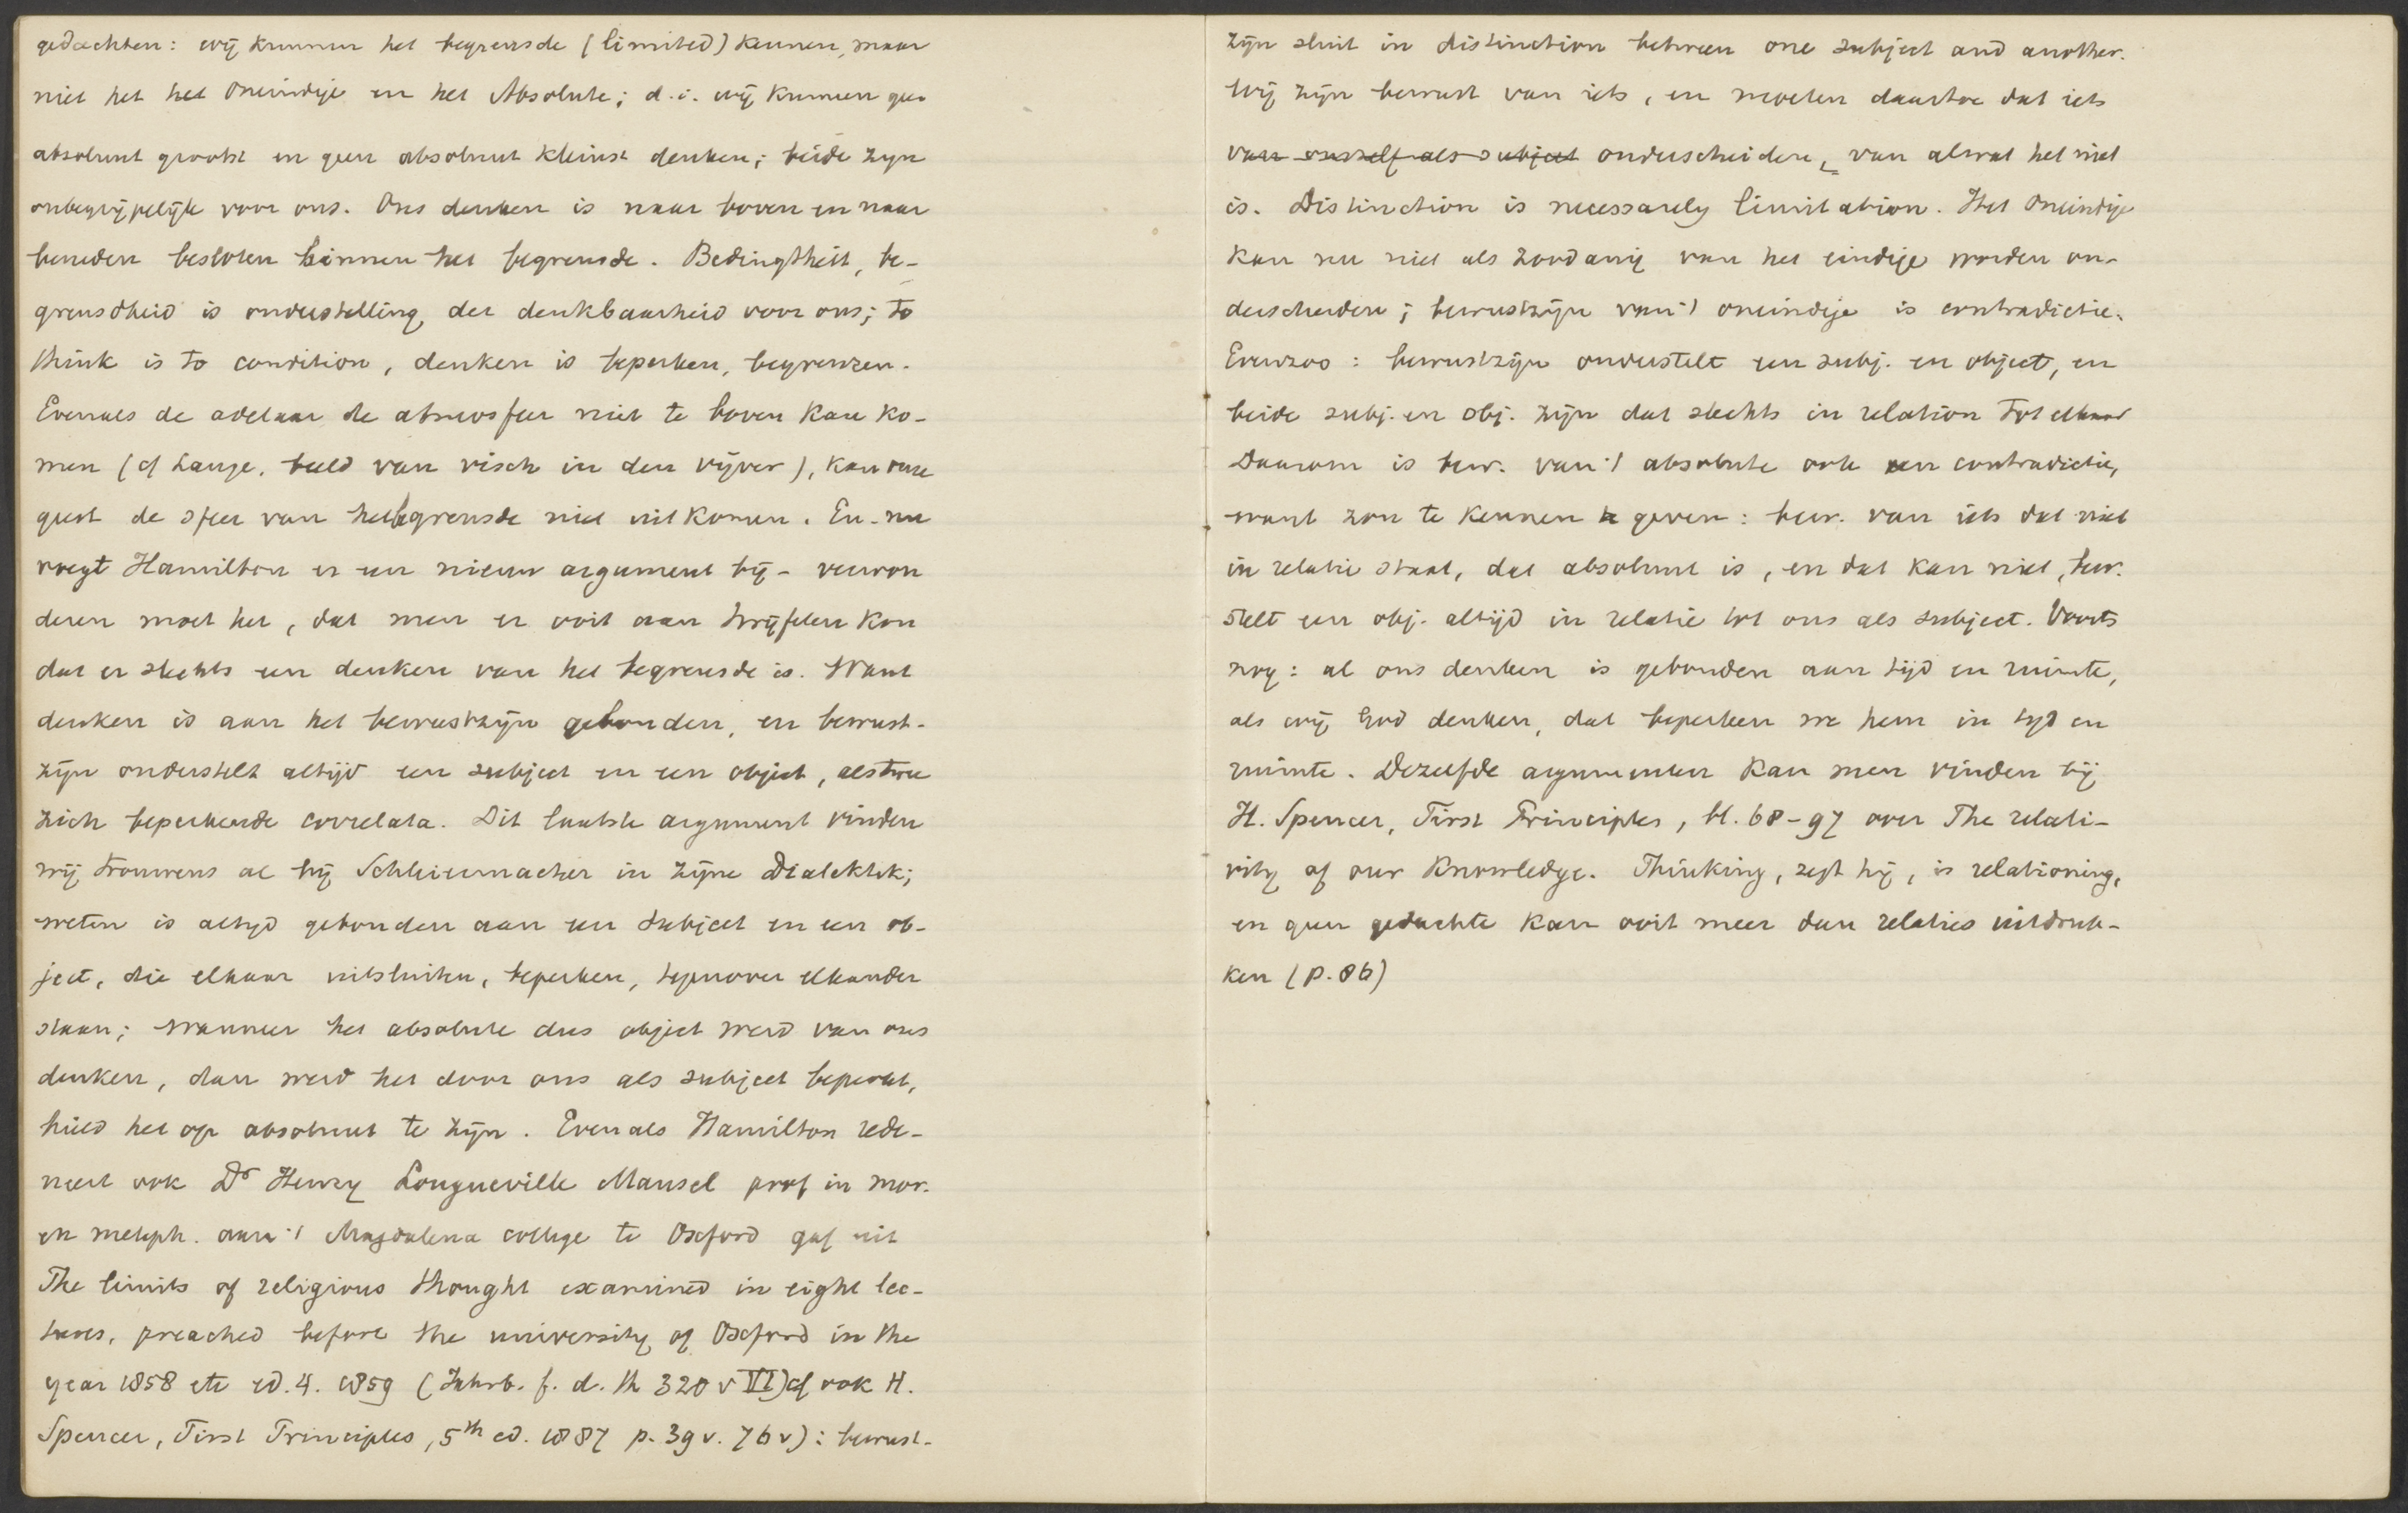 gedachten: wij kunnen het begrensde (limited) kennen, maar
niet het het Oneindige en het Absolute; d.i. wij kunnen geen
absoluut grootst en geen absoluut kleinst denken; beide zijn
onbegrijpelijk voor ons. Ons denken is naar boven en naar
beneden besloten binnen het begrensde. Bedingtheit, be-
grensdheid is onderstelling der denkbaarheid voor ons; to
think is to condition, denken is beperken, begrenzen.
Evenals de adelaar de atmosfeer niet te boven kan ko-
men (cf Lange, beeld van visch in den vijver), kan onze
geest de sfeer van het begrensde niet uitkomen. En nu
voegt Hamilton er een nieuw argument bij - verwon
deren moet het, dat men er ooit aan twijfelen kon
dat er slechts een denken van het begrensde is. Want
denken is aan het bewustzijn gebonden, en bewust-
zijn onderstelt altijd een subject en een object, als twee
zich beperkende correlata. Dit laatste argument vinden
wij trouwens al bij Schleiermacher in zijne Dialektik;
weten is altijd gebonden aan een subject en een ob-
ject, die elkaar uitsluiten, beperken, tegenover elkander
staan; wanneer het absolute dus object werd van ons
denken, dan werd het door ons als subject beperkt,
hield het op absoluut te zijn. Evenals Hamilton rede-
neert ook Dr Henry Longueville Mansel prof in mor.
en metaph. aan 't Magdalena college te Oxford gaf uit
The limits of religious thought examined in eight lec-
tures, preached before the university of Oxford in the
year 1858 etc ed. 4. 1859 (Jahrb. f. d. Th 320 v VI) cf ook H.
Spencer, First Principles, 5th ed. 1887 p. 39 v. 76 v): bewust-
zijn sluit in distinction between one subject and another.
Wij zijn bewust van iets, en moeten daartoe dat iets
van onszelf als subject onderscheiden, van alwat het niet
is. Distinction is necessarely limitation. Het Oneindige
kan nu niet als zoodanig van het eindige worden on-
derscheiden; bewustzijn van 't oneindige is contradictie.
Evenzoo: bewustzijn onderstelt een subj. en object, en
beide subj. en obj. zijn dat slechts in relation tot elkaar
Daarom is bew. van 't absolute ook een contradictie,
want zou te kennen geven: bew. van iets dat niet
in relatie staat, dat absoluut is, en dat kan niet, bew.
stelt een obj. altijd in relatie tot ons als subject. Voorts
nog: al ons denken is gebonden aan tijd en ruimte,
als wij God denken, dat beperken we hem in tijd en
ruimte. Dezelfde argumenten kan men vinden bij
H. Spencer, First Principles, bl. 68-97 over The relati-
vity of our Knowledge. Thinking, zegt hij, is relationing,
en geen gedachte kan ooit meer dan relaties uitdruk-
ken (p. 86)